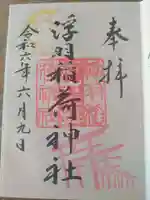 奉拝
浮羽稲荷神社
令和六年六月九日